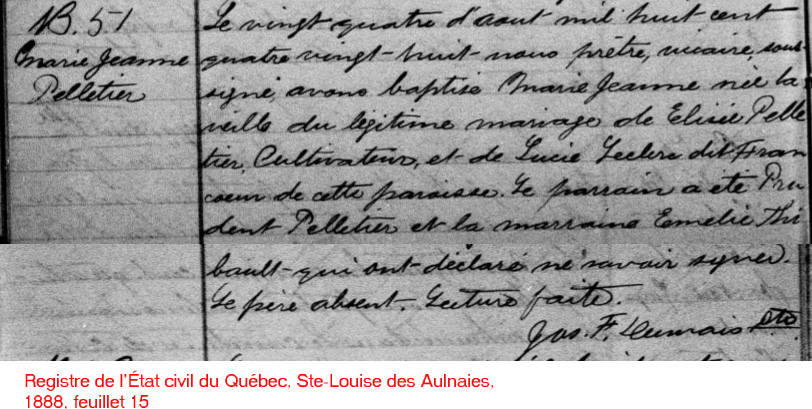 B. 51
Marie Jeanne
Pelletier
Le vingt quatre d'aout mil huit cent
quatre vingt-huit-nous prêtre, vicaire, sous
signé, avons baptisé Marie Jeanne née la
veille du légitime mariage de Elisée Pelle
tier, Cultivateur, et de Lucie Leclerc dit Fran
coeur de cette paroisse. Le parrain a été Pru
dent Pelletier et la marraine Emelie Thi
bault-qui ont-déclaré ne savoir signer.
Le père absent. Lecture faite.
Jos. F. Dumais Ptre
Registre de l'État civil du Québec, Ste-Louise des Aulnaies,
1888, feuillet 15